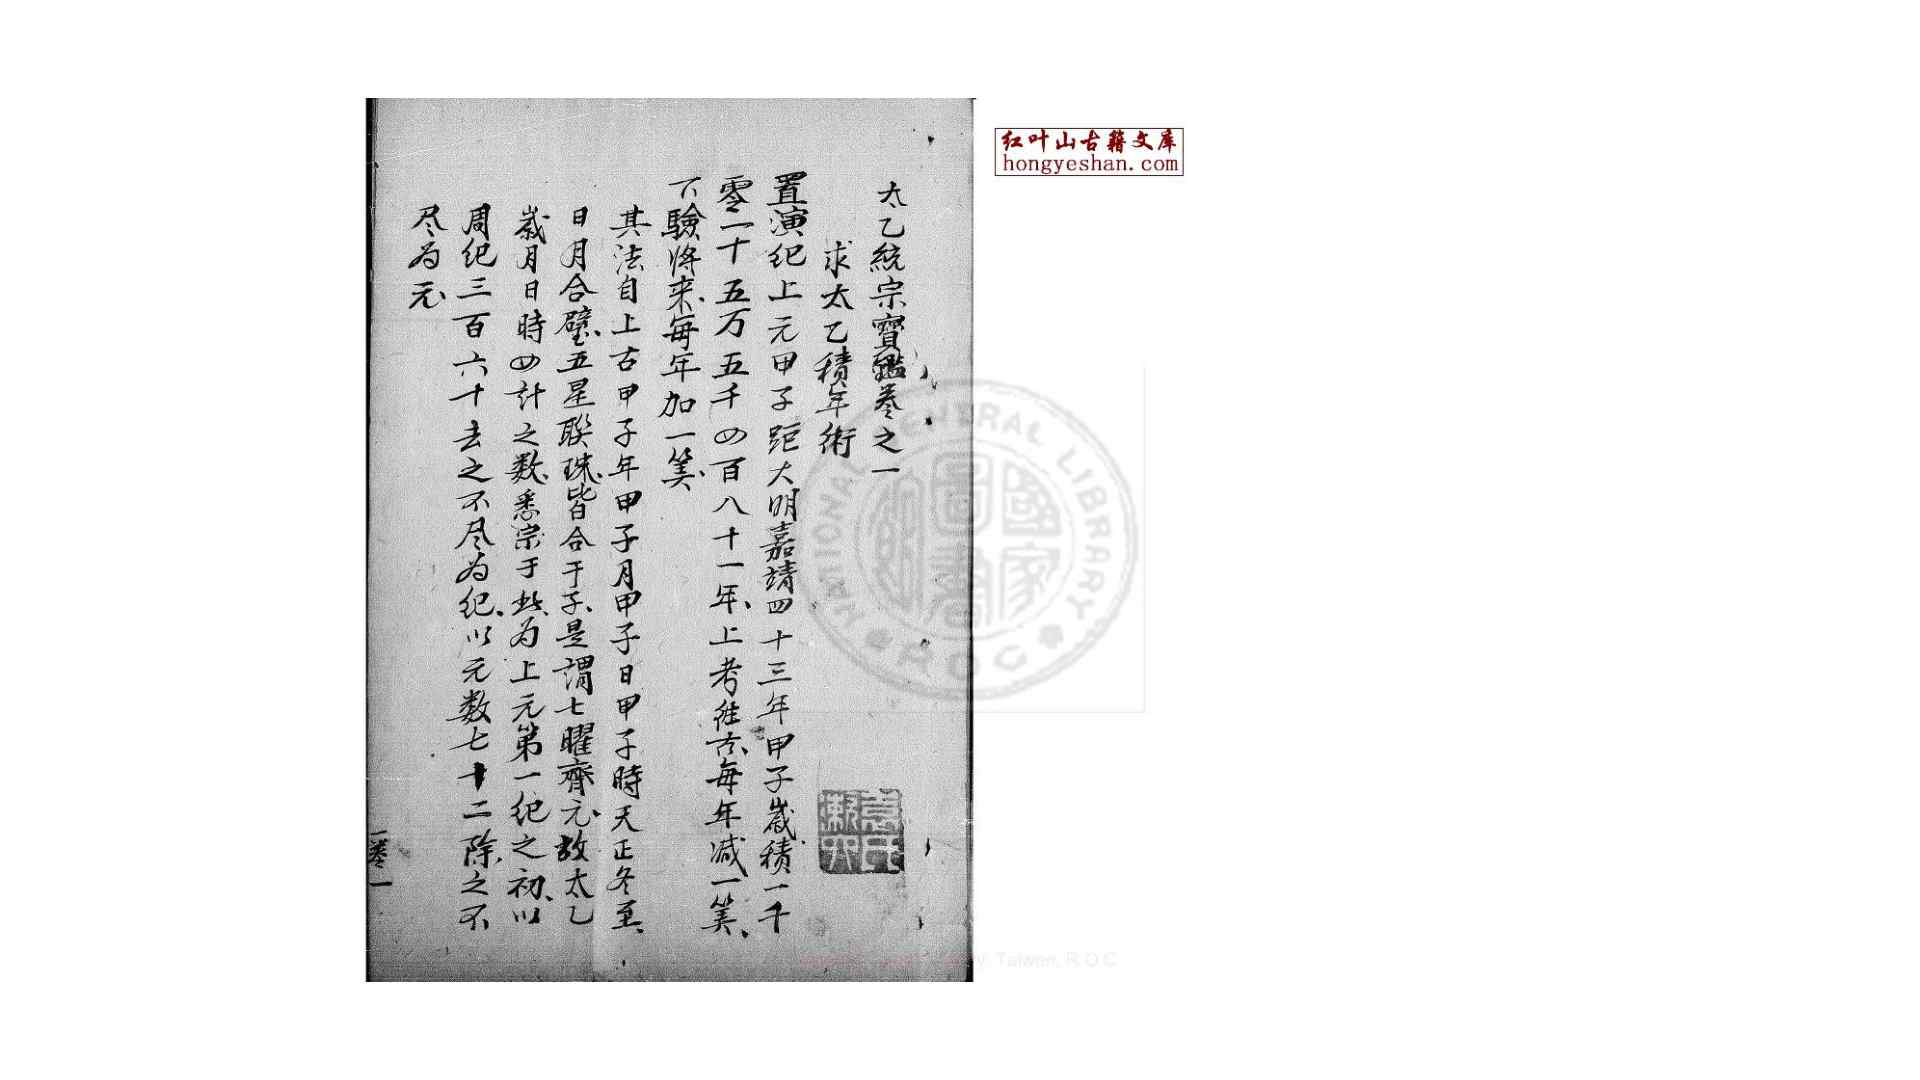 太乙統宗寶鑑卷之一
求太乙積年術
置演紀上元甲子距大明嘉靖四十三年甲子歲積一千
零一十五万五千四百八十一年上考往古每年減一筭
下驗將来每年加一筭
其法自上古甲子年甲子月甲子日甲子時天正冬至
日月合璧五星聯珠皆合于子是謂七曜齊元故太乙
歲月日時四計之数悉宗于此為上元第一紀之初以
周紀三百六十去之不尽為紀以元数七十二除之不
尽為元
卷一
红叶山古籍文库
hongyeshan.com
NATIONAL CENTRAL LIBRARY
R.O.C
國家圖書館
Taiwan, R.O.C